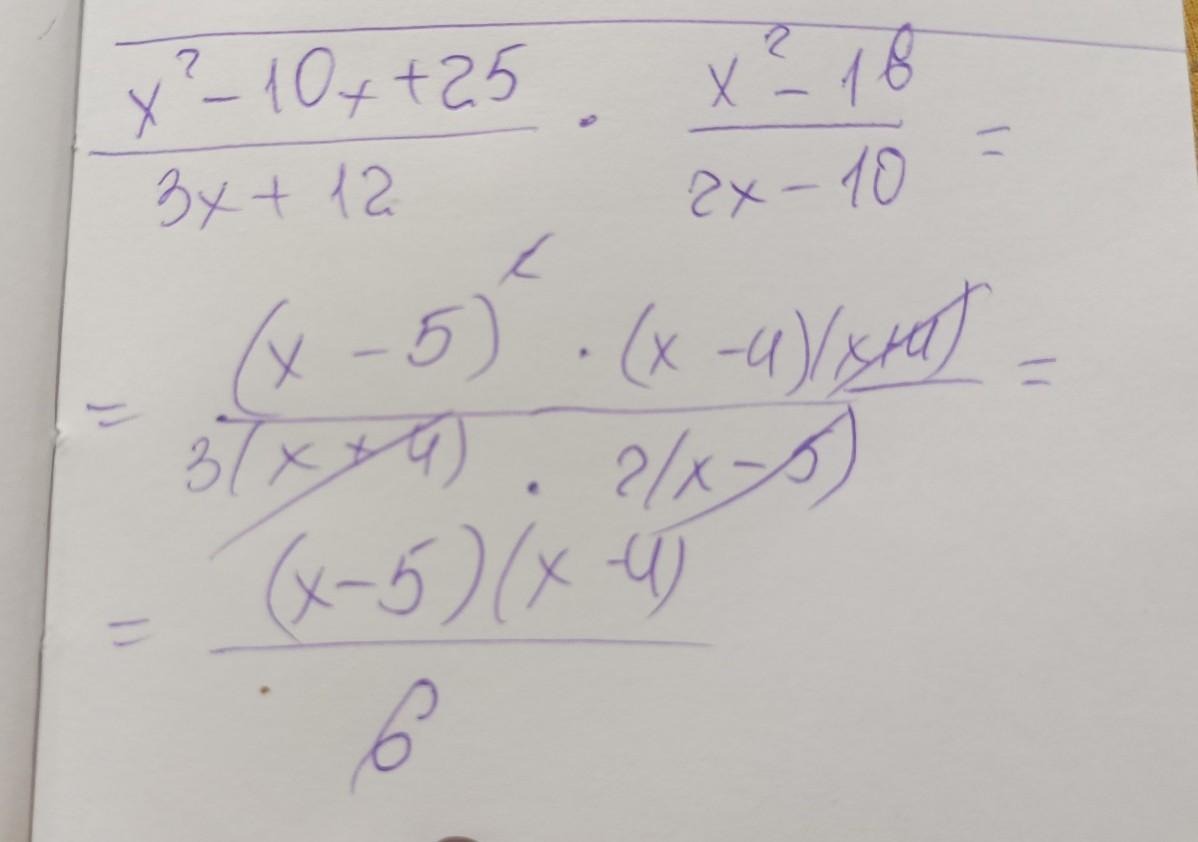 x² - 10x + 25 / 3x + 12 · x² - 16 / 2x - 10 =
= (x - 5)² · (x - 4)(x + 4) / 3(x + 4) · 2(x - 5) =
= (x - 5)(x - 4) / 6